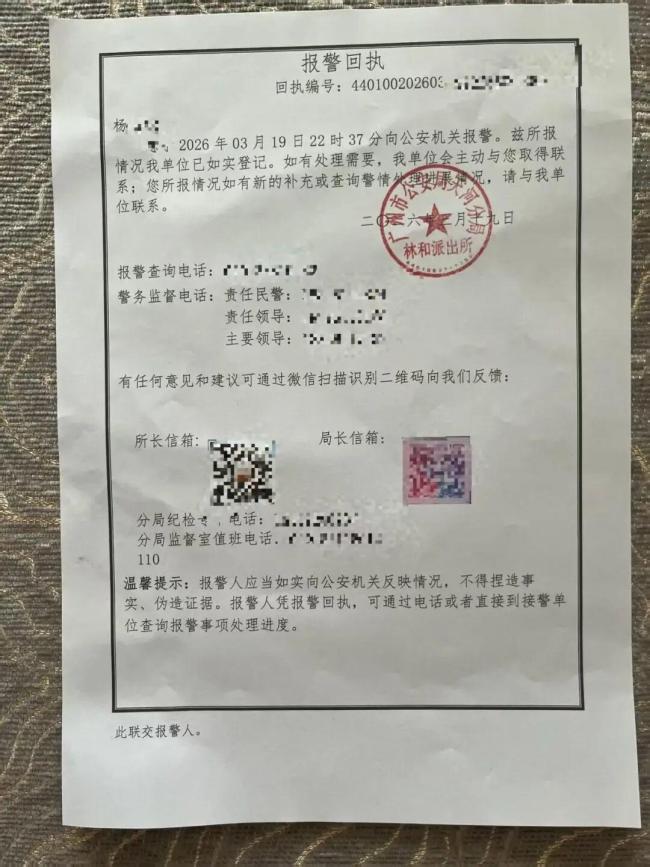 报警回执
回执编号：440100202603
杨
2026年03月19日22时37分向公安机关报警。兹所报
情况我单位已如实登记。如有处理需要，我单位会主动与您取得联
系；您所报情况如有新的补充或查询警情处理进展情况，请与我单
位联系。
二〇二六年三月十九日
广州市公安局天河分局
林和派出所
报警查询电话：
警务监督电话：责任民警：
责任领导：
主要领导：
有任何意见和建议可通过微信扫描识别二维码向我们反馈：
所长信箱： 局长信箱：
分局纪检 电话：
分局监督室值班电话
110
温馨提示：报警人应当如实向公安机关反映情况，不得捏造事
实、伪造证据。报警人凭报警回执，可通过电话或者直接到接警单
位查询报警事项处理进度。
此联交报警人。